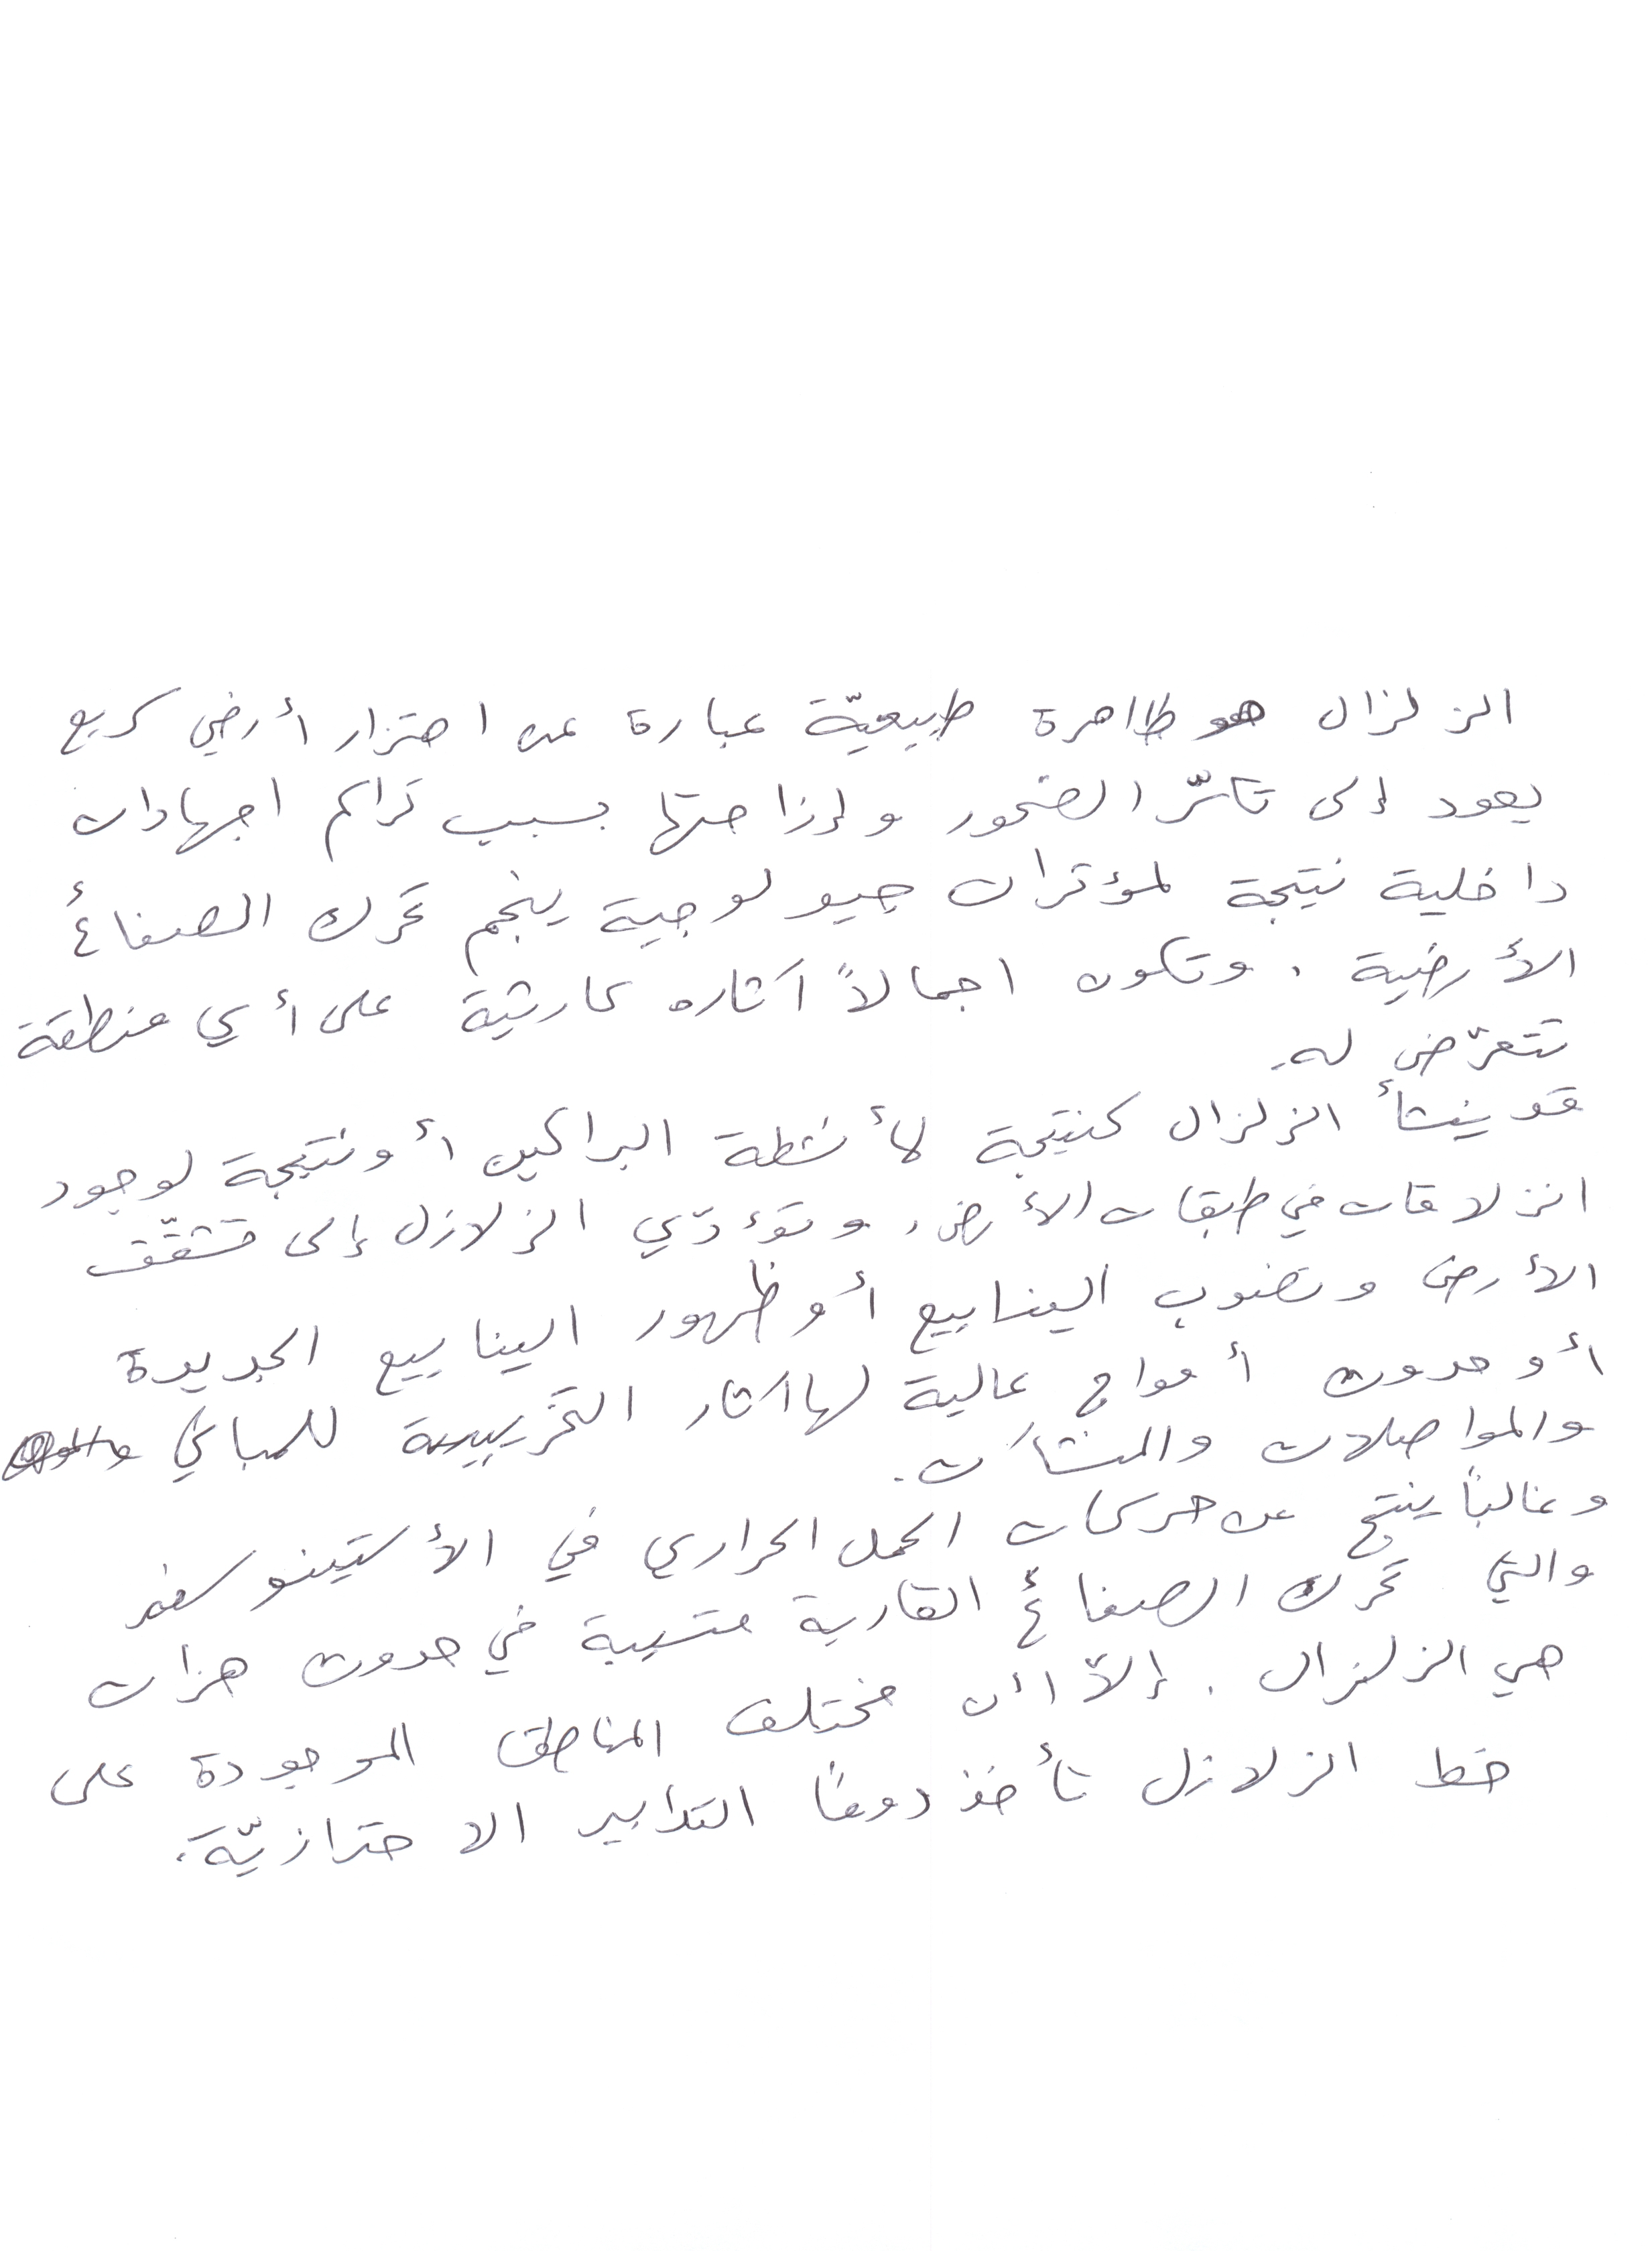 الزلزال هو ظاهرة طبيعيّة عبارة عن اهتزار أرضي سريع
يعود إلى تكسّر الصخور وإزاحتها بسبب تراكم اجهادات
داخلية نتيجة لمؤثرات جيولوجية ينجم تحرك الصفائح
الأرضية. وتكون اجمالاً آثاره كارثية على أي منطقة
تتعرّض له.
قد ينشأ الزلزال كنتيجة لأنشطة البراكين أو نتيجة لوجود
انزلاقات في طبقات الأرض، وتؤدّي الزلازل إلى تشقّق
الأرض ونضوب الينابيع أو ظهور الينابيع الجديدة
أو حدوث أمواج عالية لها آثار التخريبية للمباني
والمواصلات والمنشآت.
وغالباً ينتج عن حركات الحمل الحراري في الأستينوسفير
والتي تحرك الصفائح القارية متسببة في حدوث هزات
هي الزلزال. إلاّ أن مختلف المناطق الموجودة على
خط الزلازل تأخذ دوماً التدابير الاحترازيّة.